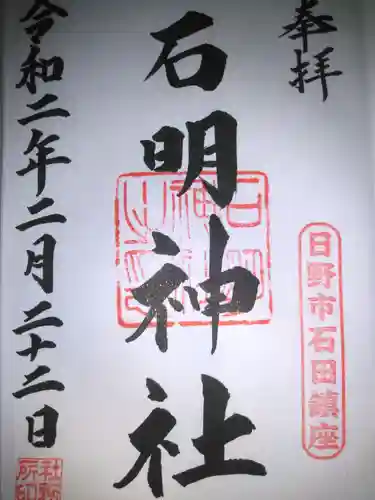 奉拝
日野市石田鎮座
石明神社
令和二年二月二十二日